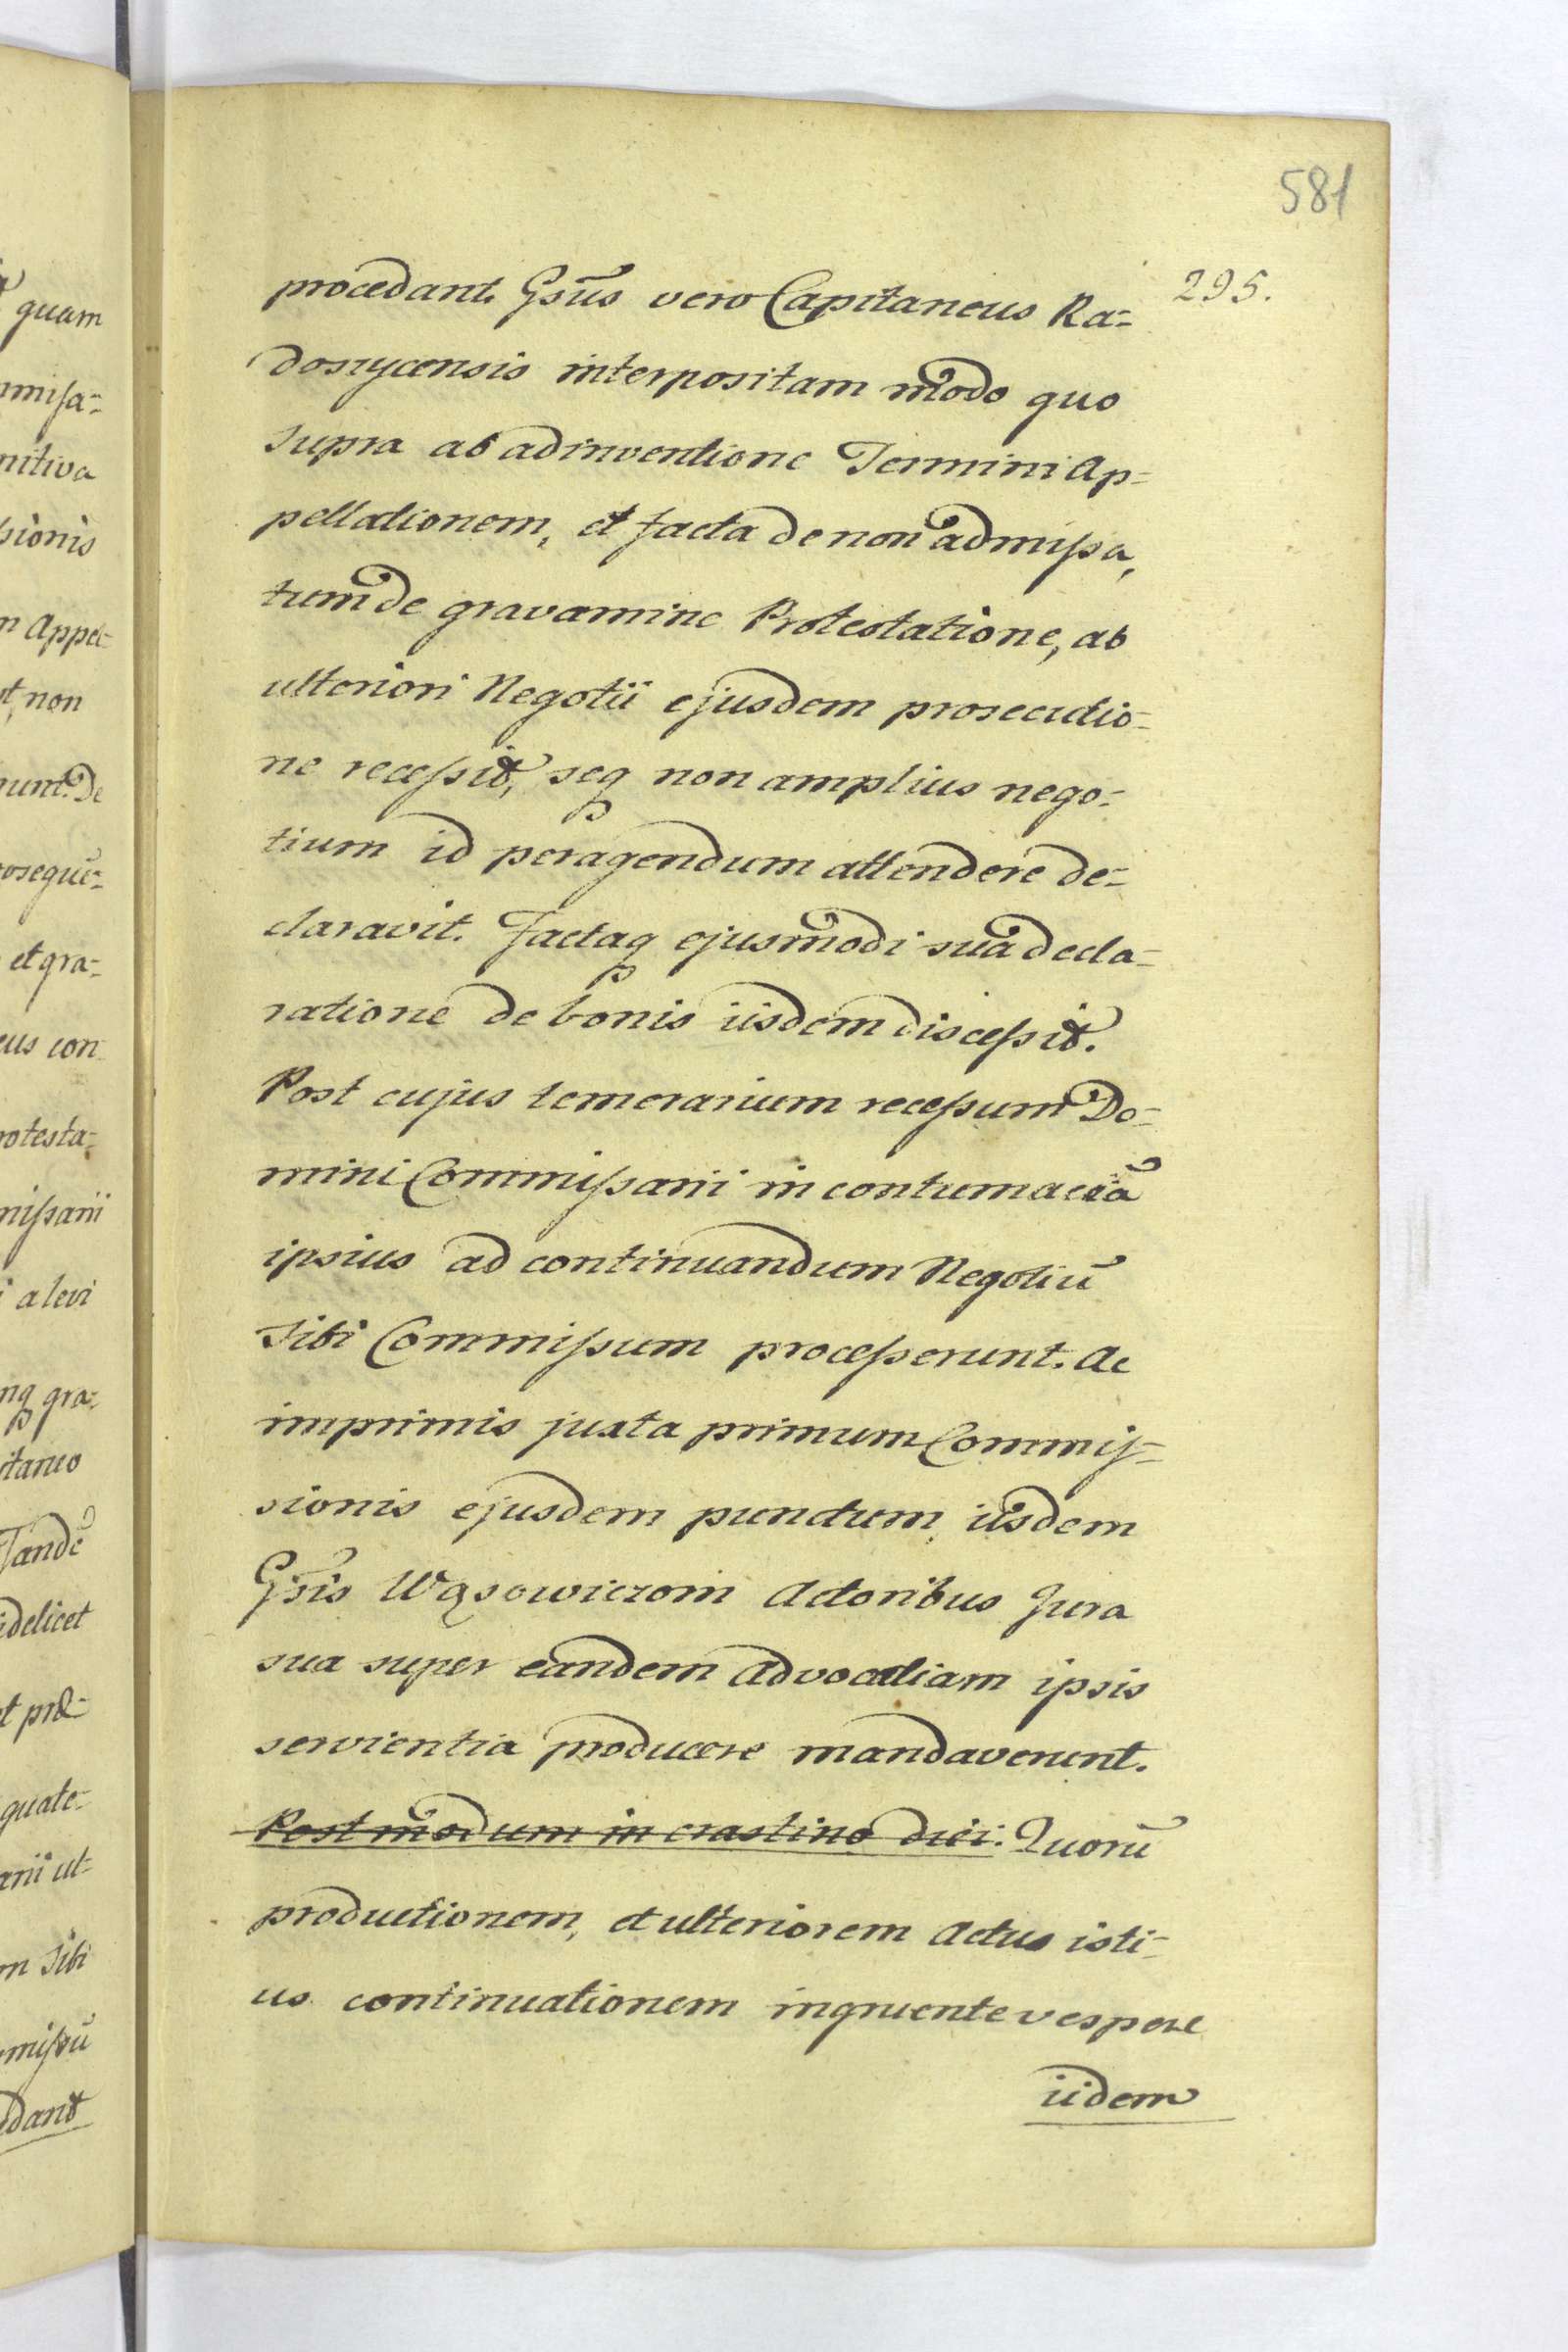 581
295.
procedant. Gsũs vero Capitaneus Ra-
doszycensis interpositam modo quo
supra ab adinventione Termini Ap-
pellationem, et facta de non admissa,
tum de gravamine Protestatione, ab
ulteriori Negotii ejusdem prosecutio-
ne recessit, seq non amplius nego-
tium id peragendum attendere de-
claravit. Factaq ejusmodi sua decla-
ratione de bonis iisdem discessit.
Post cujus temerarium recessum Do-
mini Commissarii in contumaciã
ipsius ad continuandum Negotiũ
sibi Commissum processerunt. Ac
imprimis juxta primum Commis-
sionis ejusdem punctum iisdem
Gsis Wąsowiczom Actoribus Jura
sua super eandem Advocatiam ipsis
servientia producere mandaverunt.
Postmodum in crastino diei. Quorũ
productionem, et ulteriorem Actus isti-
us continuationem ingruente vespere
iidem
quam
missa-
nitiva
sionis
m Appel-
t, non
num. De
rosequē-
et gra-
eus con
rotesta-
missarii
i a levi
nq gra-
itaneo
Tandē
idelicet
t præ-
quate-
arii ut-
m Sibi
missũ
dant